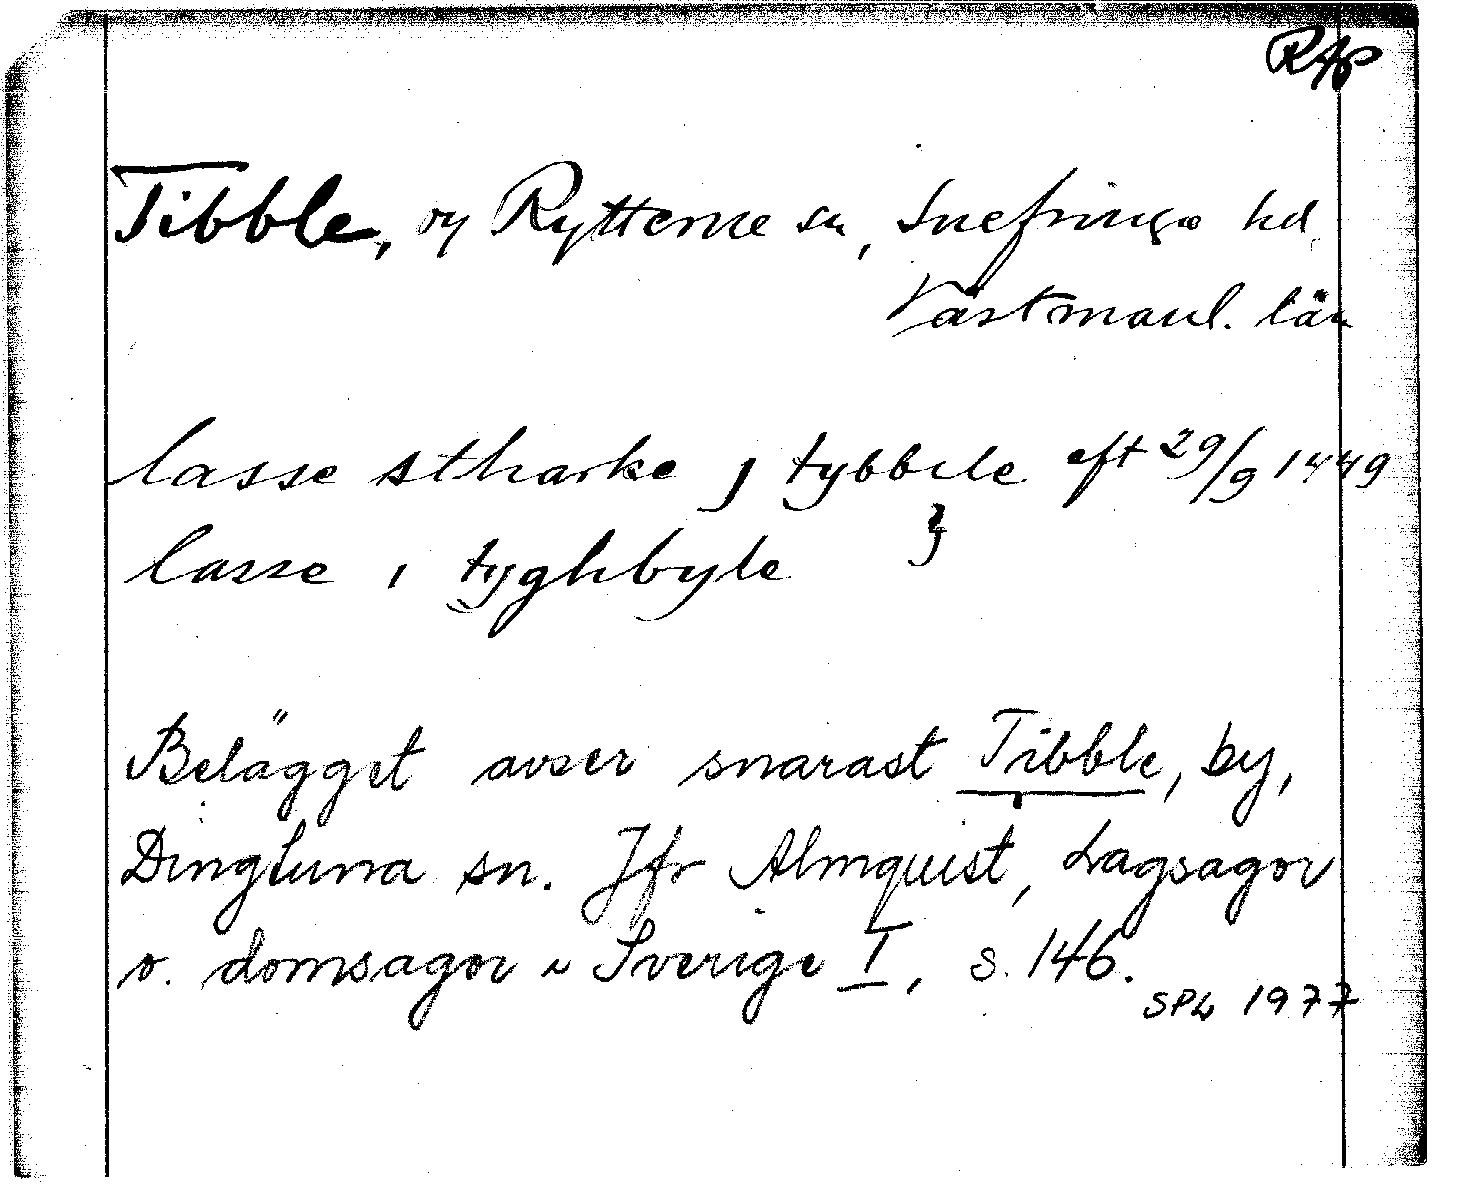 RAp
Tibble, by Rytterne sn, Snefringe hd
Västmanl. län
lasse stharke j tybbele eft 29/9 1449
lasse i tyghbyle }
Belägget avser snarast Tibble, by,
Dingtuna sn. Jfr Almquist, Lagsagor
o. domsagor i Sverige I, s. 146.
SPL 1977